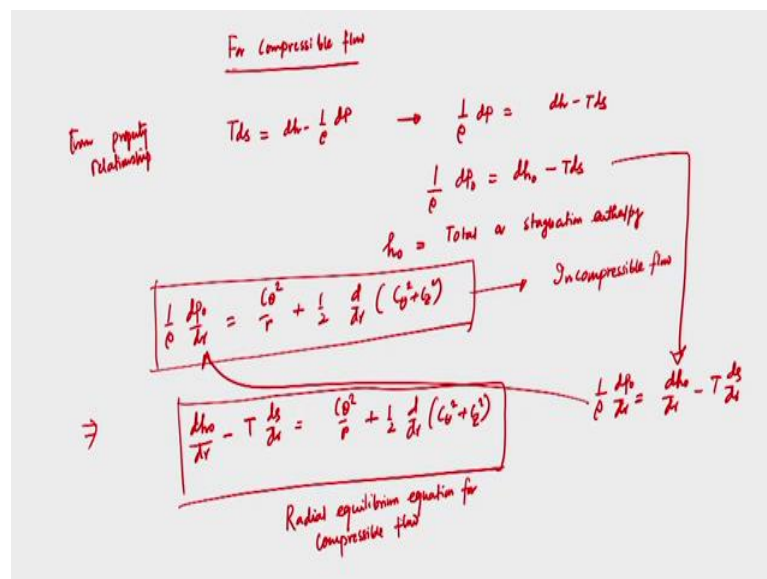 For compressible flow
From property relationship
Tds = dh - 1/ρ dp → 1/ρ dp = dh - Tds
1/ρ dp₀ = dh₀ - Tds
h₀ = Total or stagnation enthalpy
1/ρ dp₀/dr = Cθ²/r + 1/2 d/dr (Cθ² + Cz²) → Incompressible flow
1/ρ dp₀/dr = dh₀/dr - T ds/dr
⇒ dh₀/dr - T ds/dr = Cθ²/r + 1/2 d/dr (Cθ² + Cz²)
Radial equilibrium equation for
compressible flow